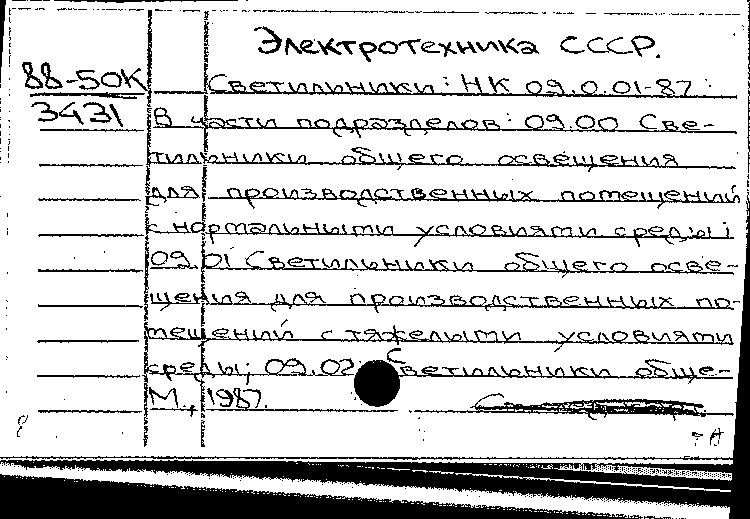 Электротехника СССР.
88-50К
3431
Светильники: НК 09.0.01-87:
В части подразделов: 09.00 Све-
тильники общего освещения
для производственных помещений
с нормальными условиями среды;
09.01 Светильники общего осве-
щения для производственных по-
мещений с тяжелыми условиями
среды; 09.02 Светильники обще-
М., 1987.